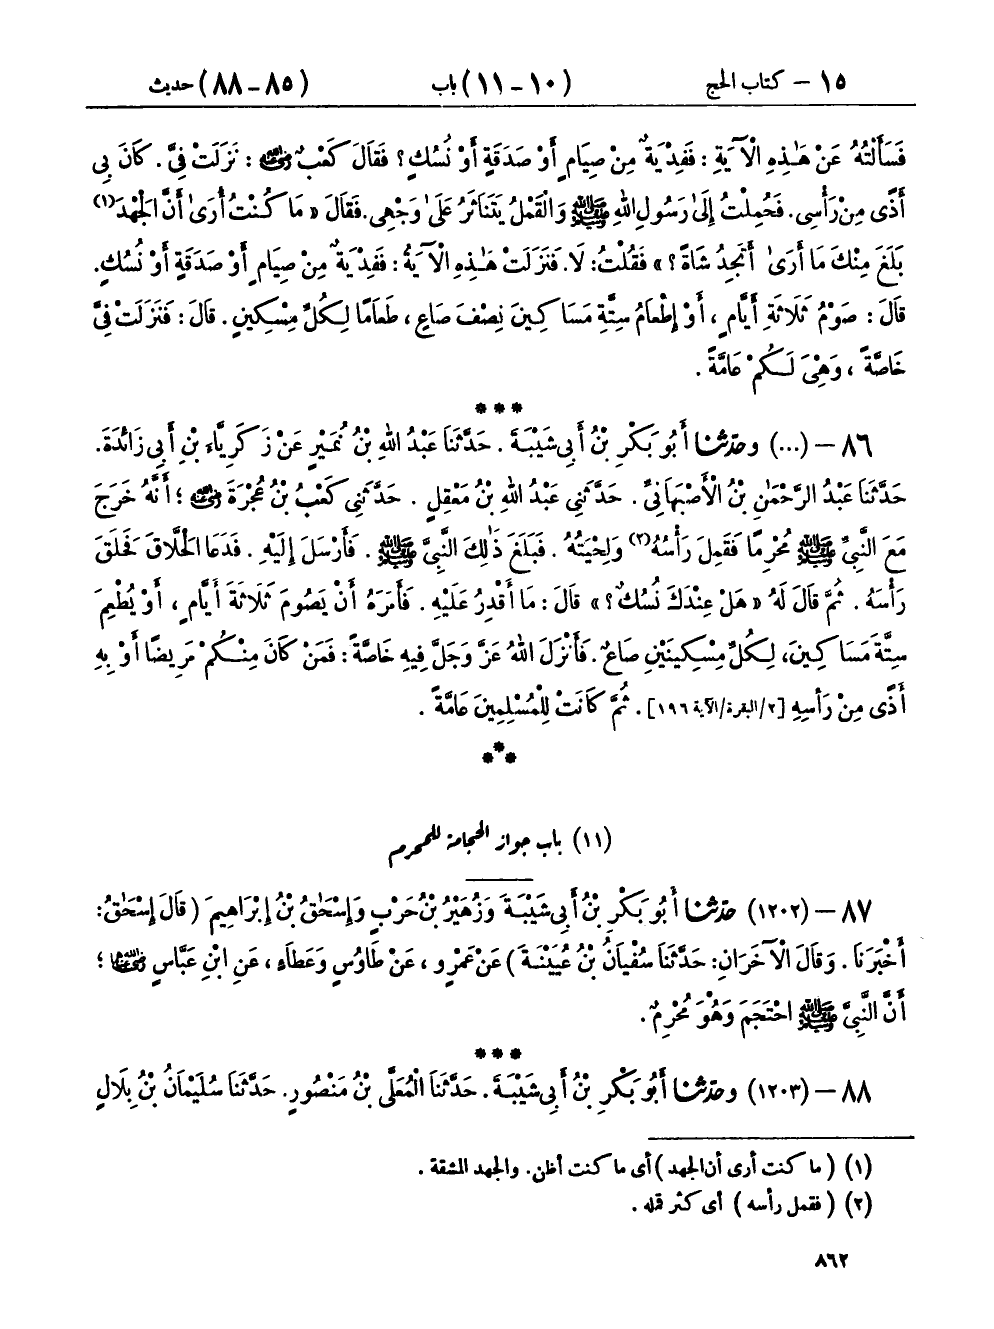 ١٥ – كتاب الحج (١٠-١١) باب (٨٥-٨٨) حديث
فَسَأَلْتُهُ عَنْ هَٰذِهِ الْآيَةِ : فَفِدْيَةٌ مِنْ صِيَامٍ أَوْ صَدَقَةٍ أَوْ نُسُكٍ ؟ فَقَالَ كَعْبٌ رضي الله عنه : نَزَلَتْ فِيَّ . كَانَ بِي
أَذًى مِنْ رَأْسِي. فَحُمِلْتُ إِلَىٰ رَسُولِ اللهِ ﷺ وَالْقَمْلُ يَتَنَاثَرُ عَلَىٰ وَجْهِي. فَقَالَ « مَا كُنْتُ أُرَىٰ أَنَّ الْجَهْدَ(١)
بَلَغَ مِنْكَ مَا أَرَىٰ أَتَجِدُ شَاةً ؟ » فَقُلْتُ: لَا. فَنَزَلَتْ هَٰذِهِ الْآيَةُ : فَفِدْيَةٌ مِنْ صِيَامٍ أَوْ صَدَقَةٍ أَوْ نُسُكٍ.
قَالَ : صَوْمُ ثَلَاثَةِ أَيَّامٍ ، أَوْ إِطْعَامُ سِتَّةِ مَسَاكِينَ نِصْفَ صَاعٍ ، طَعَامًا لِكُلِّ مِسْكِينٍ . قَالَ : فَنَزَلَتْ فِيَّ
خَاصَّةً ، وَهْيَ لَكُمْ عَامَّةً .
***
٨٦ – (...) وحَدَّثَنَا أَبُو بَكْرِ بْنُ أَبِي شَيْبَةَ . حَدَّثَنَا عَبْدُ اللهِ بْنُ نُمَيْرٍ عَنْ زَكَرِيَّاءَ بْنِ أَبِي زَائِدَةَ.
حَدَّثَنَا عَبْدُ الرَّحْمَٰنِ بْنُ الْأَصْبَهَانِيِّ . حَدَّثَنِي عَبْدُ اللهِ بْنُ مَعْقِلٍ . حَدَّثَنِي كَعْبُ بْنُ عُجْرَةَ رضي الله عنه ؛ أَنَّهُ خَرَجَ
مَعَ النَّبِيِّ ﷺ مُحْرِمًا فَقَمِلَ رَأْسُهُ(٢) وَلِحْيَتُهُ . فَبَلَغَ ذَٰلِكَ النَّبِيَّ ﷺ . فَأَرْسَلَ إِلَيْهِ . فَدَعَا الْحَلَّاقَ فَحَلَقَ
رَأْسَهُ . ثُمَّ قَالَ لَهُ « هَلْ عِنْدَكَ نُسُكٌ ؟ » قَالَ : مَا أَقْدِرُ عَلَيْهِ . فَأَمَرَهُ أَنْ يَصُومَ ثَلَاثَةَ أَيَّامٍ ، أَوْ يُطْعِمَ
سِتَّةَ مَسَاكِينَ، لِكُلِّ مِسْكِينَيْنِ صَاعٌ . فَأَنْزَلَ اللهُ عَزَّ وَجَلَّ فِيهِ خَاصَّةً : فَمَنْ كَانَ مِنْكُمْ مَرِيضًا أَوْ بِهِ
أَذًى مِنْ رَأْسِهِ [٢/البقرة/الآية ١٩٦] . ثُمَّ كَانَتْ لِلْمُسْلِمِينَ عَامَّةً .
***
(١١) باب جواز الحجامة للمحرم
٨٧ – (١٢٠٢) حَدَّثَنَا أَبُو بَكْرِ بْنُ أَبِي شَيْبَةَ وَزُهَيْرُ بْنُ حَرْبٍ وَإِسْحَٰقُ بْنُ إِبْرَاهِيمَ ( قَالَ إِسْحَٰقُ :
أَخْبَرَنَا . وَقَالَ الْآخَرَانِ: حَدَّثَنَا سُفْيَانُ بْنُ عُيَيْنَةَ ) عَنْ عَمْرٍو ، عَنْ طَاوُسٍ وَعَطَاءٍ ، عَنِ ابْنِ عَبَّاسٍ رضي الله عنهما ؛
أَنَّ النَّبِيَّ ﷺ احْتَجَمَ وَهُوَ مُحْرِمٌ .
***
٨٨ – (١٢٠٣) وحَدَّثَنَا أَبُو بَكْرِ بْنُ أَبِي شَيْبَةَ . حَدَّثَنَا الْمُعَلَّى بْنُ مَنْصُورٍ. حَدَّثَنَا سُلَيْمَانُ بْنُ بِلَالٍ
(١) ( ما كنت أرى أن الجهد ) أى ما كنت أظن. والجهد المشقة .
(٢) ( فقمل رأسه ) أى كثر قمله .
٨٦٢